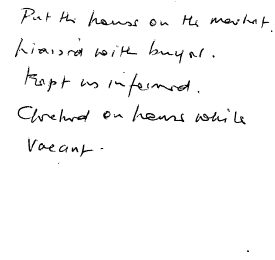 Put the house on the market.
Liaised with buyer.
Kept us informed.
Checked on house while
vacant.